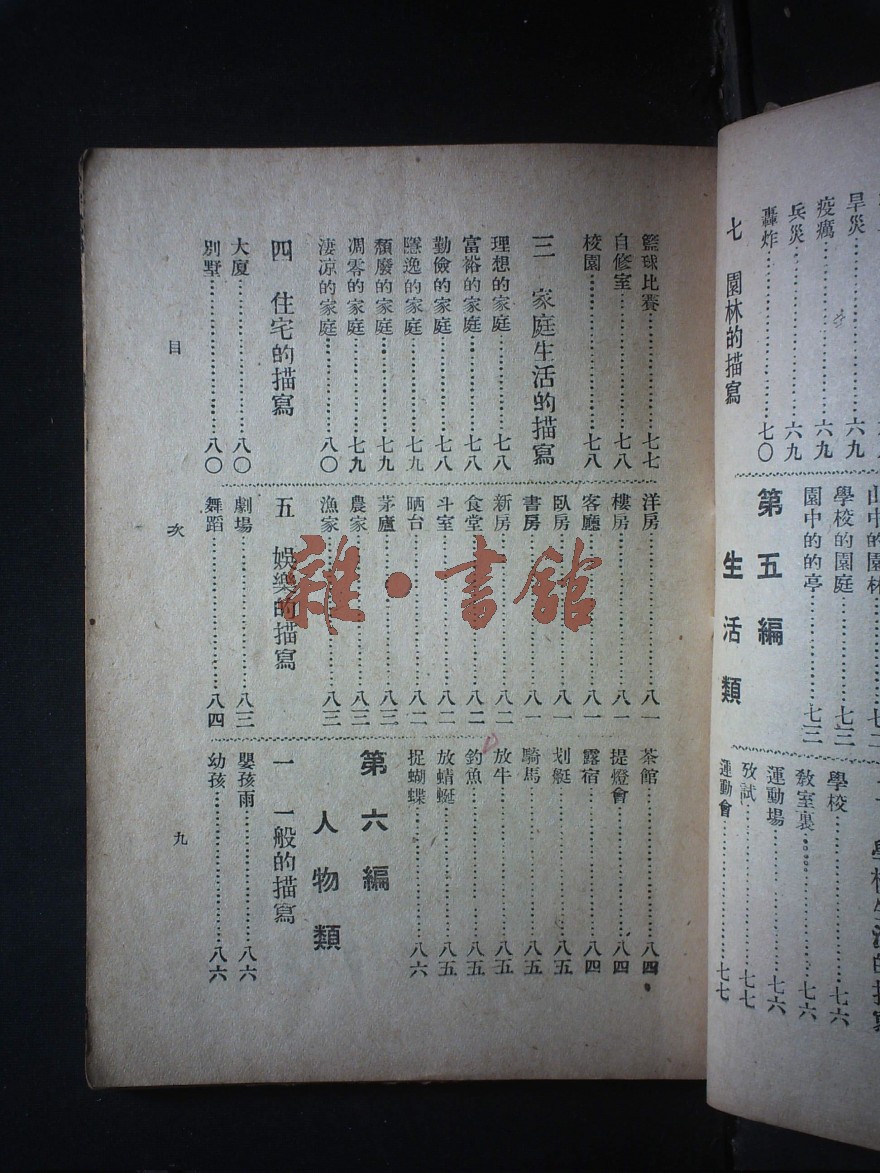 旱災……六九
疫癘……六九
兵災……六九
轟炸……七〇
七 園林的描寫
山中的園林……七二
學校的園庭……七三
園中的的亭……七三
第五編
生活類
學校生活的描寫
學校……七六
敎室裏……七六
運動場……七六
攷試……七七
運動會……七七
籃球比賽……七七
自修室……七八
校園……七八
三 家庭生活的描寫
理想的家庭……七八
富裕的家庭……七八
勤儉的家庭……七八
的家庭……七九
頹廢的家庭……七九
凋零的家庭……七九
淒凉的家庭……八〇
四 住宅的描寫
大厦……八〇
別墅……八〇
洋房……八一
樓房……八一
客廳……八一
臥房……八一
書房……八一
新房……八二
食堂……八二
斗室……八二
晒台……八二
茅廬……八三
農家……八三
漁家……八三
五 娛樂的描寫
劇場……八三
舞蹈……八四
茶館……八四
提燈會……八四
露宿……八四
划艇……八五
騎馬……八五
放牛……八五
釣魚……八五
放蜻蜓……八五
捉蝴蝶……八六
第六編
人物類
一 一般的描寫
嬰孩雨……八六
幼孩……八六
目 次 九
雜·書館